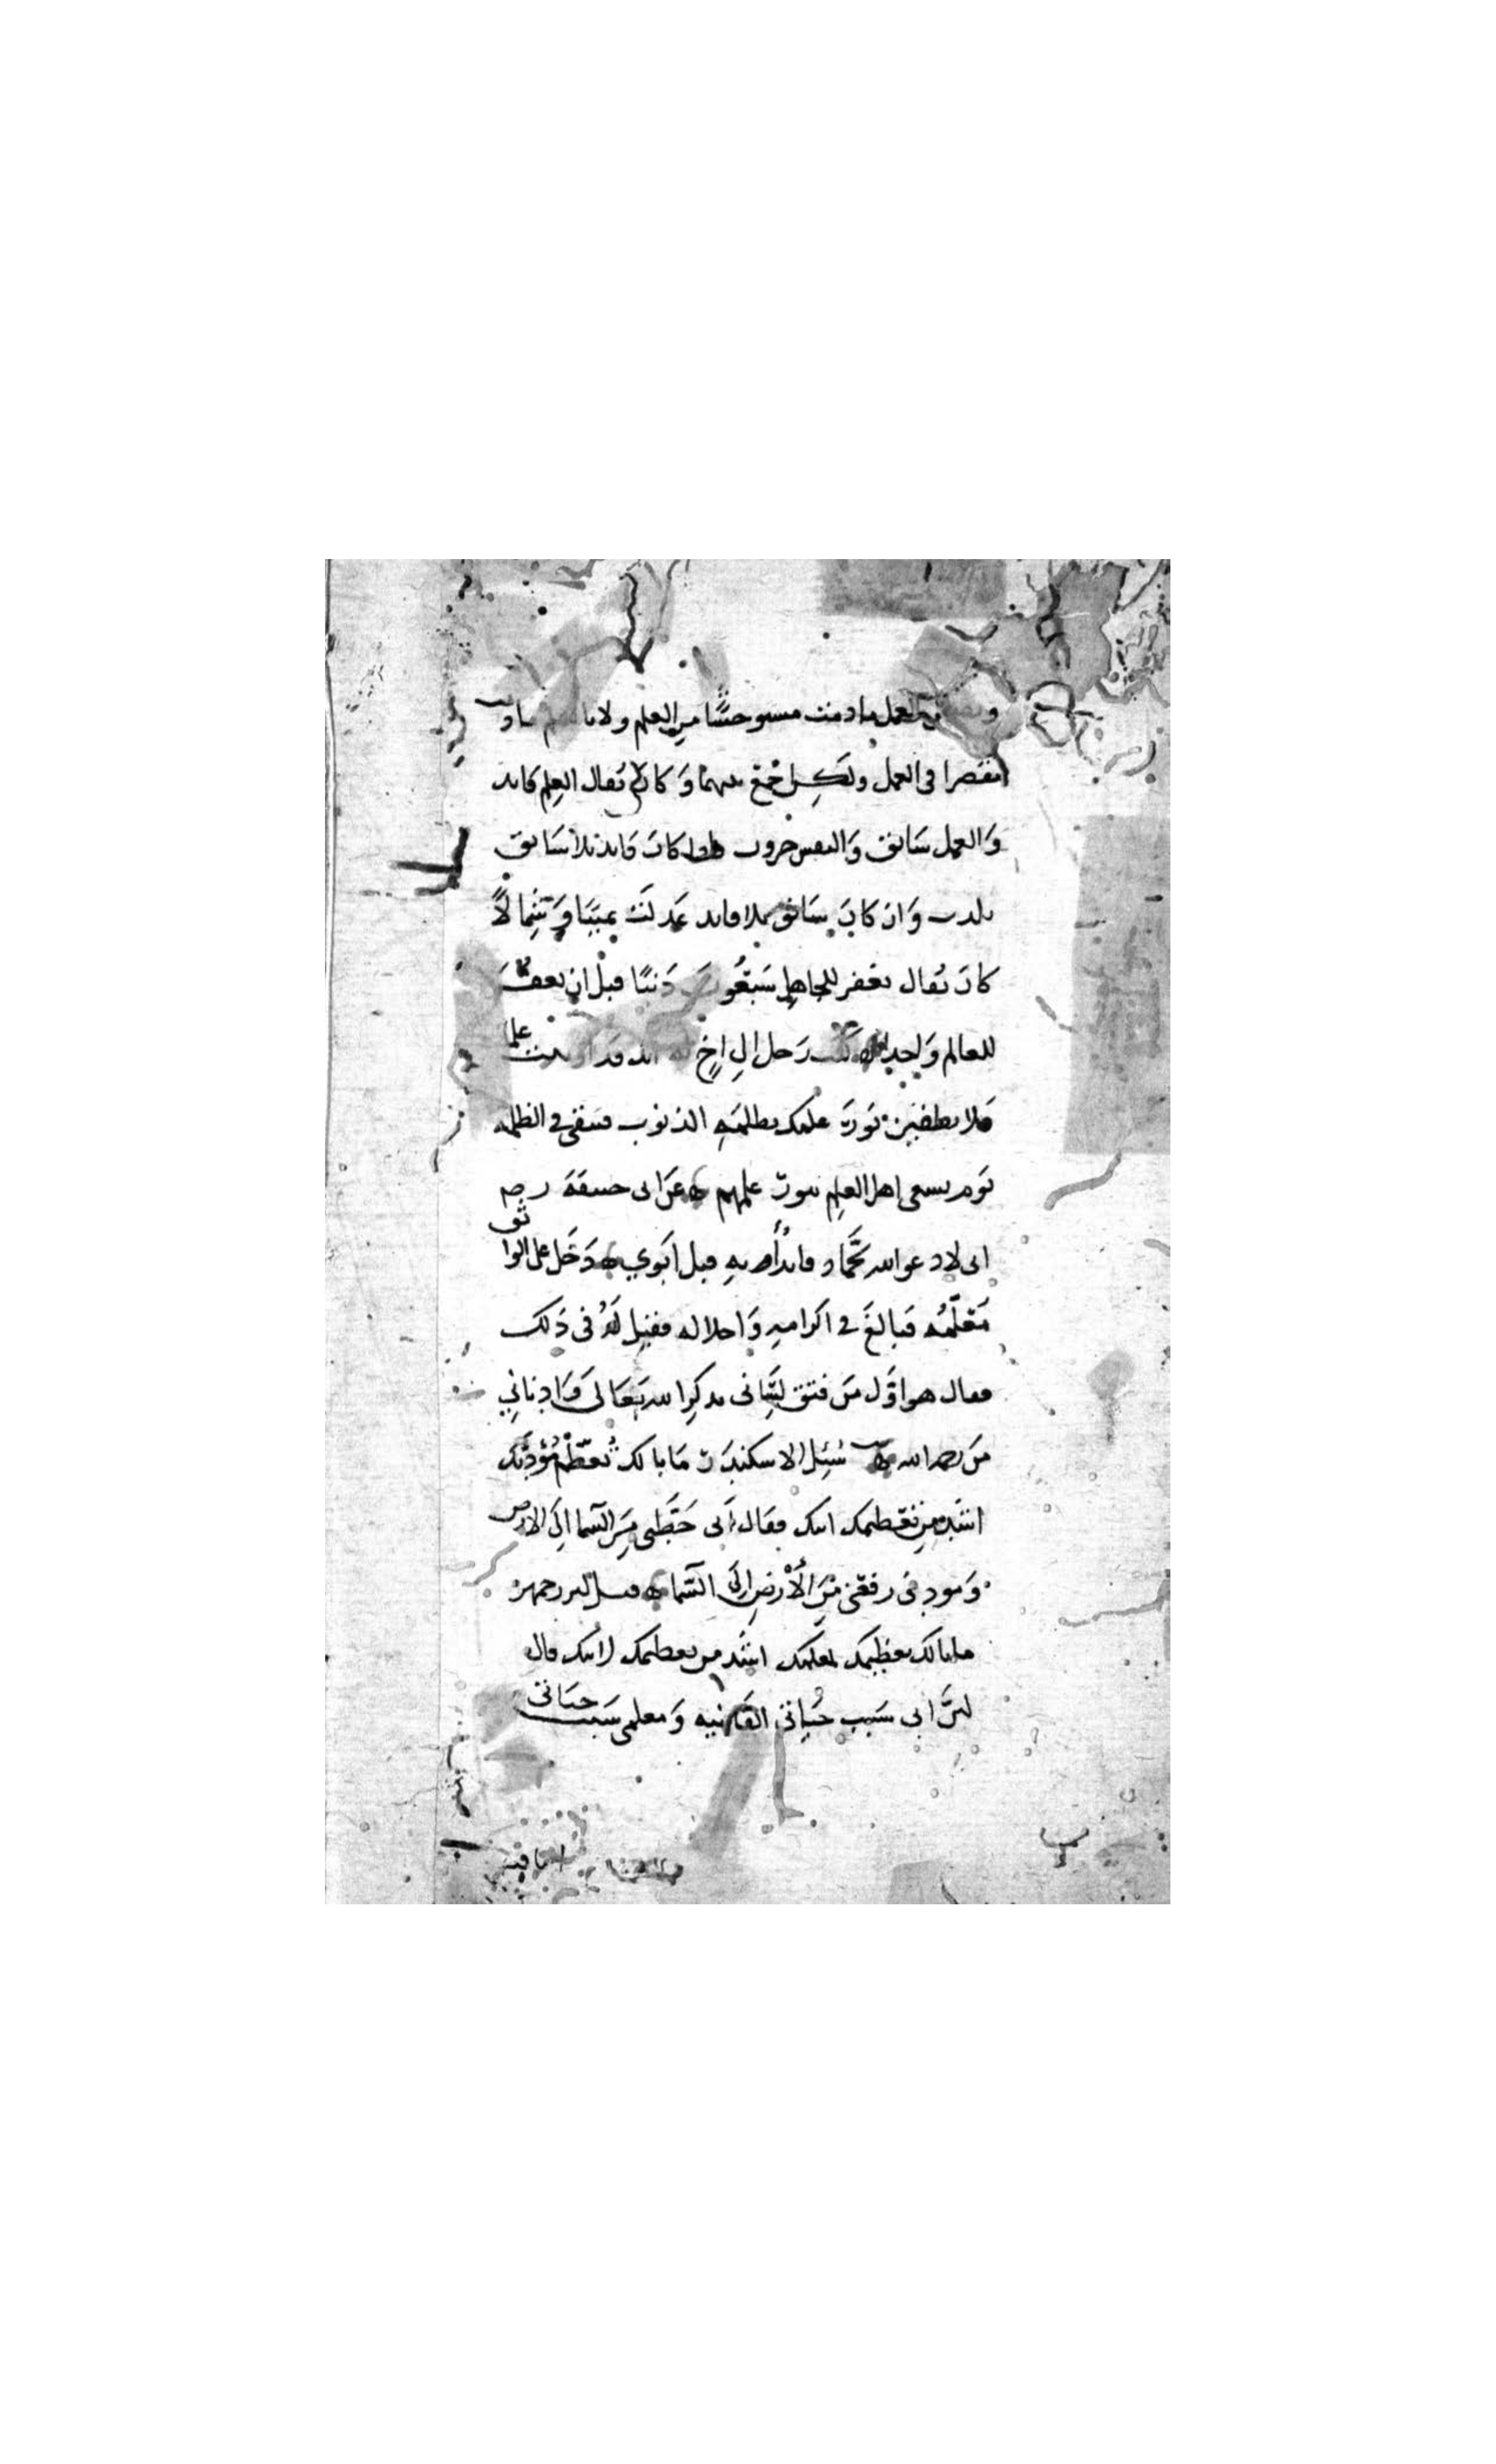 من العمل ما دمت مستوحشا من العلم ولا
مقصرا فى العمل ولكن اجمع بينهما وكان يقال العلم قائد
والعمل سائق والنفس حرون فاذا كان قائد بلا سائق
بلدت وان كان سائق بلا قائد عدلت يمينا وشمالا
كان يقال يغفر للجاهل سبعون ذنبا قبل ان يغفر
للعالم واحد كتب رجل الى اخ له انك قد اوتيت علما
فلا تطفئن نور علمك بظلمة الذنوب فتبقى فى الظلمة
يوم يسعى اهل العلم بنور علمهم عن ابى حنيفة
انى لادعو الله لحماد فابدأ به قبل ابوي دخل على الواثق
معلمه فبالغ فى اكرامه واجلاله فقيل له فى ذلك
فقال هو اول من فتق لسانى بذكر الله تعالى وادنانى
من رحمة الله سئل الاسكندر ما بالك تعظم مؤدبك
اشد من تعظيمك ابيك فقال ابى حطنى من السما الى الارض
ومودبى رفعنى من الأرض الى السما قيل لبزرجمهر
ما بالك تعظيمك لمعلمك اشد من تعظيمك لابيك قال
لان ابى سبب حياتى الفانيه ومعلمى سبب حياتى
الباقيه